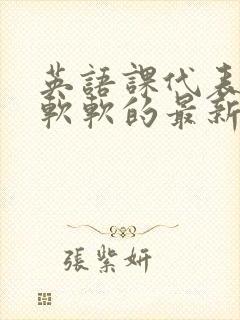 英語課代表
軟軟的最新
張紫妍